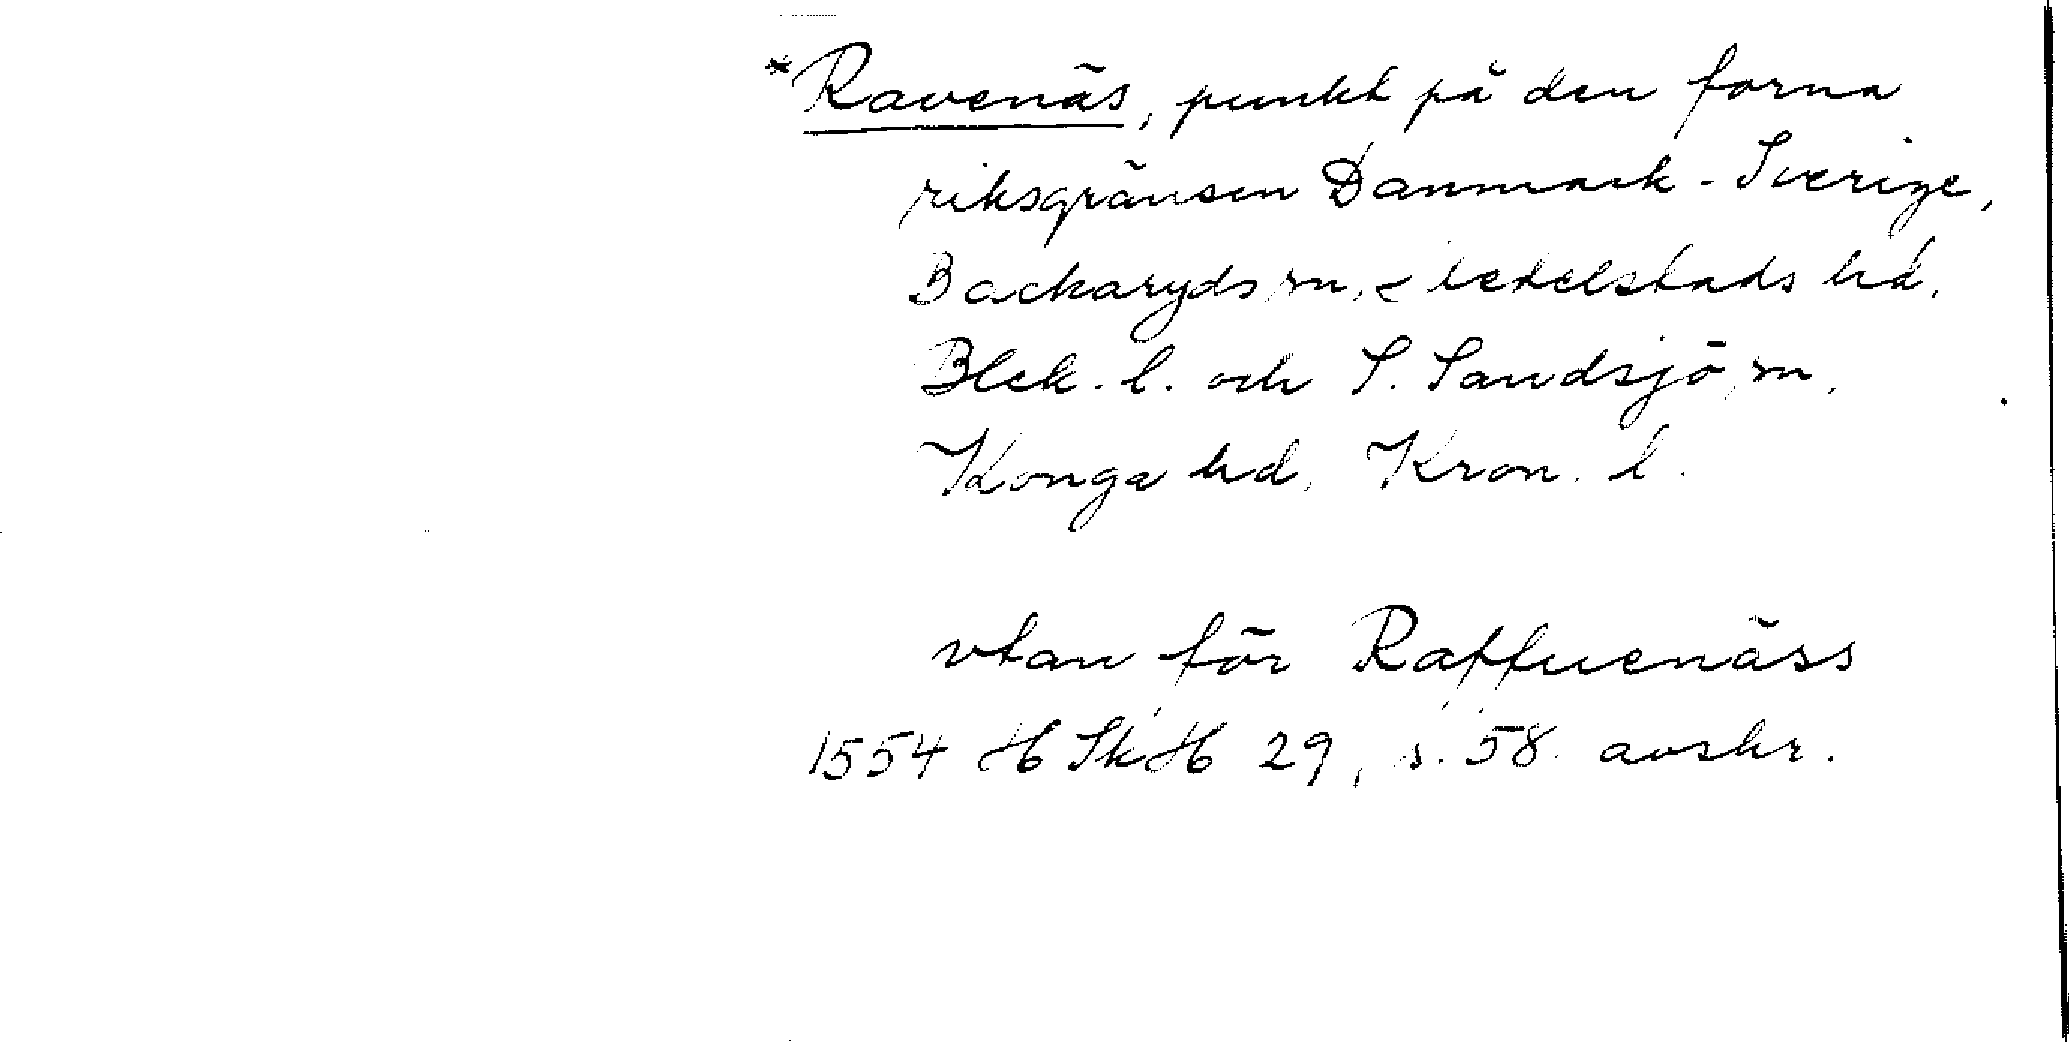 *Ravenäs, punkt på den forna
riksgränsen Danmark - Sverige,
Backaryds sn, Medelstads hd,
Blek. l. och S. Sandsjö sn,
Konga hd, Kron. l.
vtan för Raffuenäss
1554 HSkH 29, s. 58. avskr.